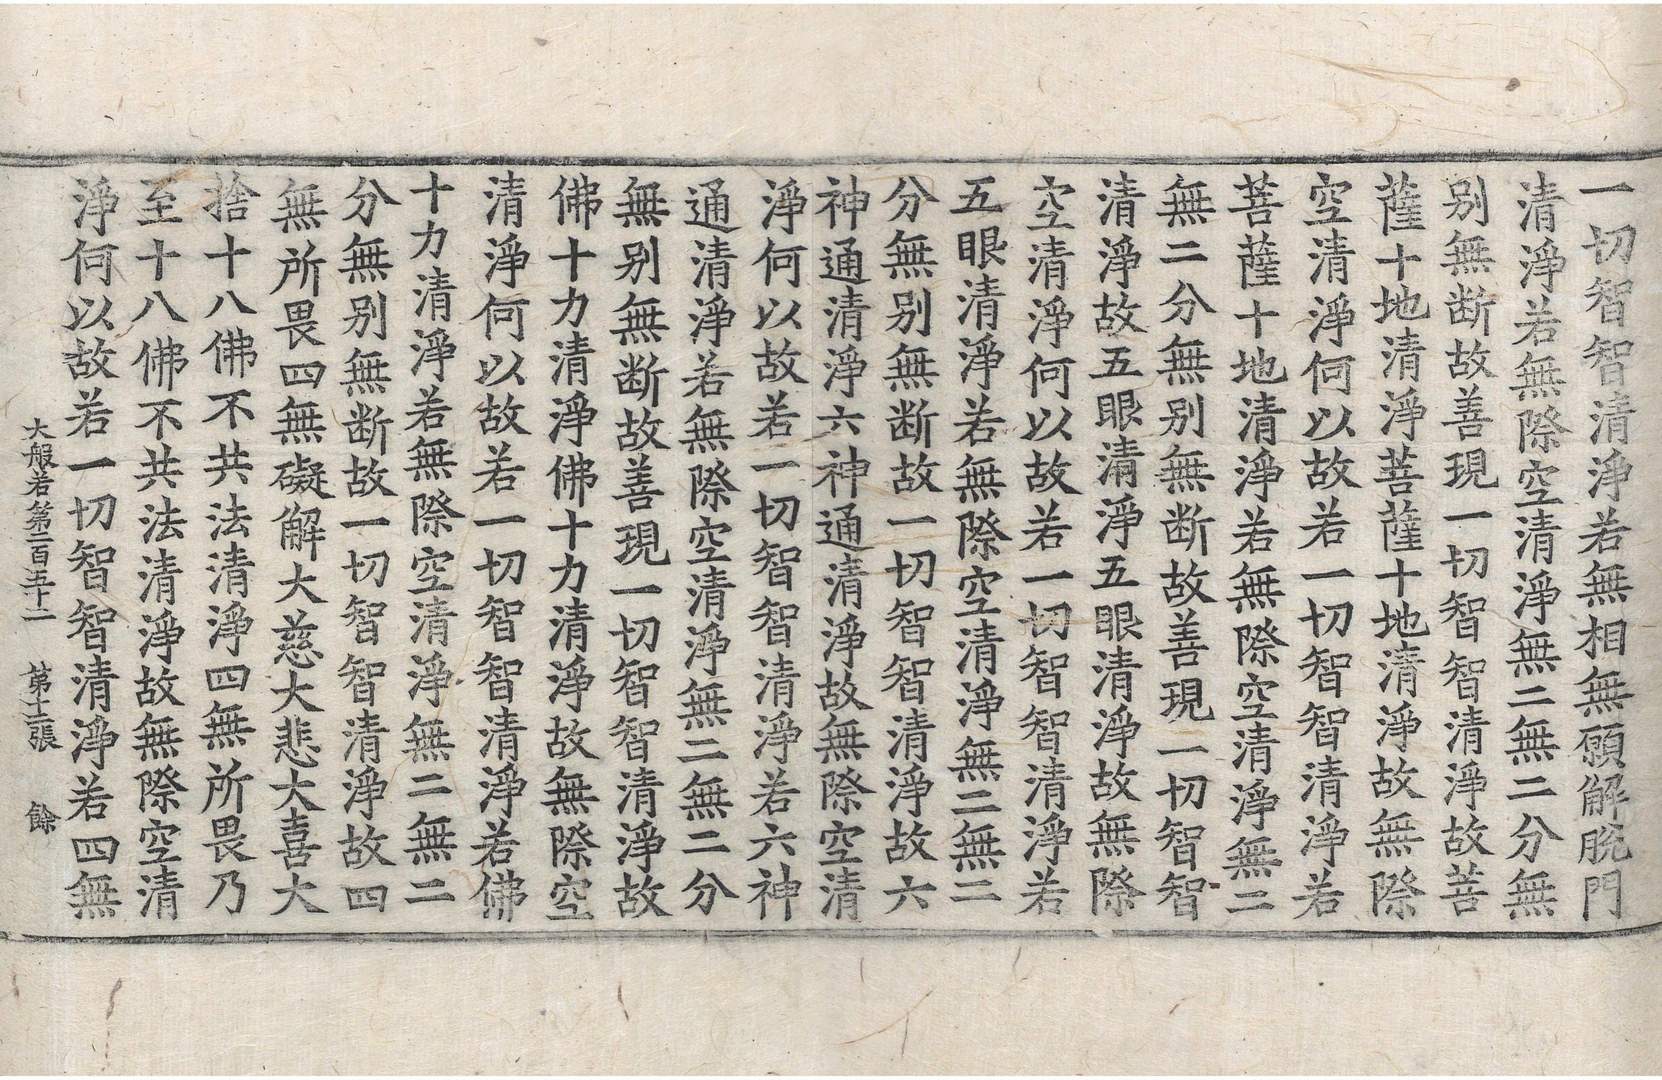 一切智智清淨若無相無願解脫門
清淨若無際空清淨無二無二分無
别無断故善現一切智智清淨故菩
薩十地清淨菩薩十地清淨故無際
空清淨何以故若一切智智清淨若
菩薩十地清淨若無際空清淨無二
無二分無别無断故善現一切智智
清淨故五眼清淨五眼清淨故無際
空清淨何以故若一切智智清淨若
五眼清淨若無際空清淨無二無二
分無别無断故一切智智清淨故六
神通清淨六神通清淨故無際空清
淨何以故若一切智智清淨若六神
通清淨若無際空清淨無二無二分
無别無断故善現一切智智清淨故
佛十力清淨佛十力清淨故無際空
清淨何以故若一切智智清淨若佛
十力清淨若無際空清淨無二無二
分無别無断故一切智智清淨故四
無所畏四無礙解大慈大悲大喜大
捨十八佛不共法清淨四無所畏乃
至十八佛不共法清淨故無際空清
淨何以故若一切智智清淨若四無
大般若第二百五十二 第十二張 餘